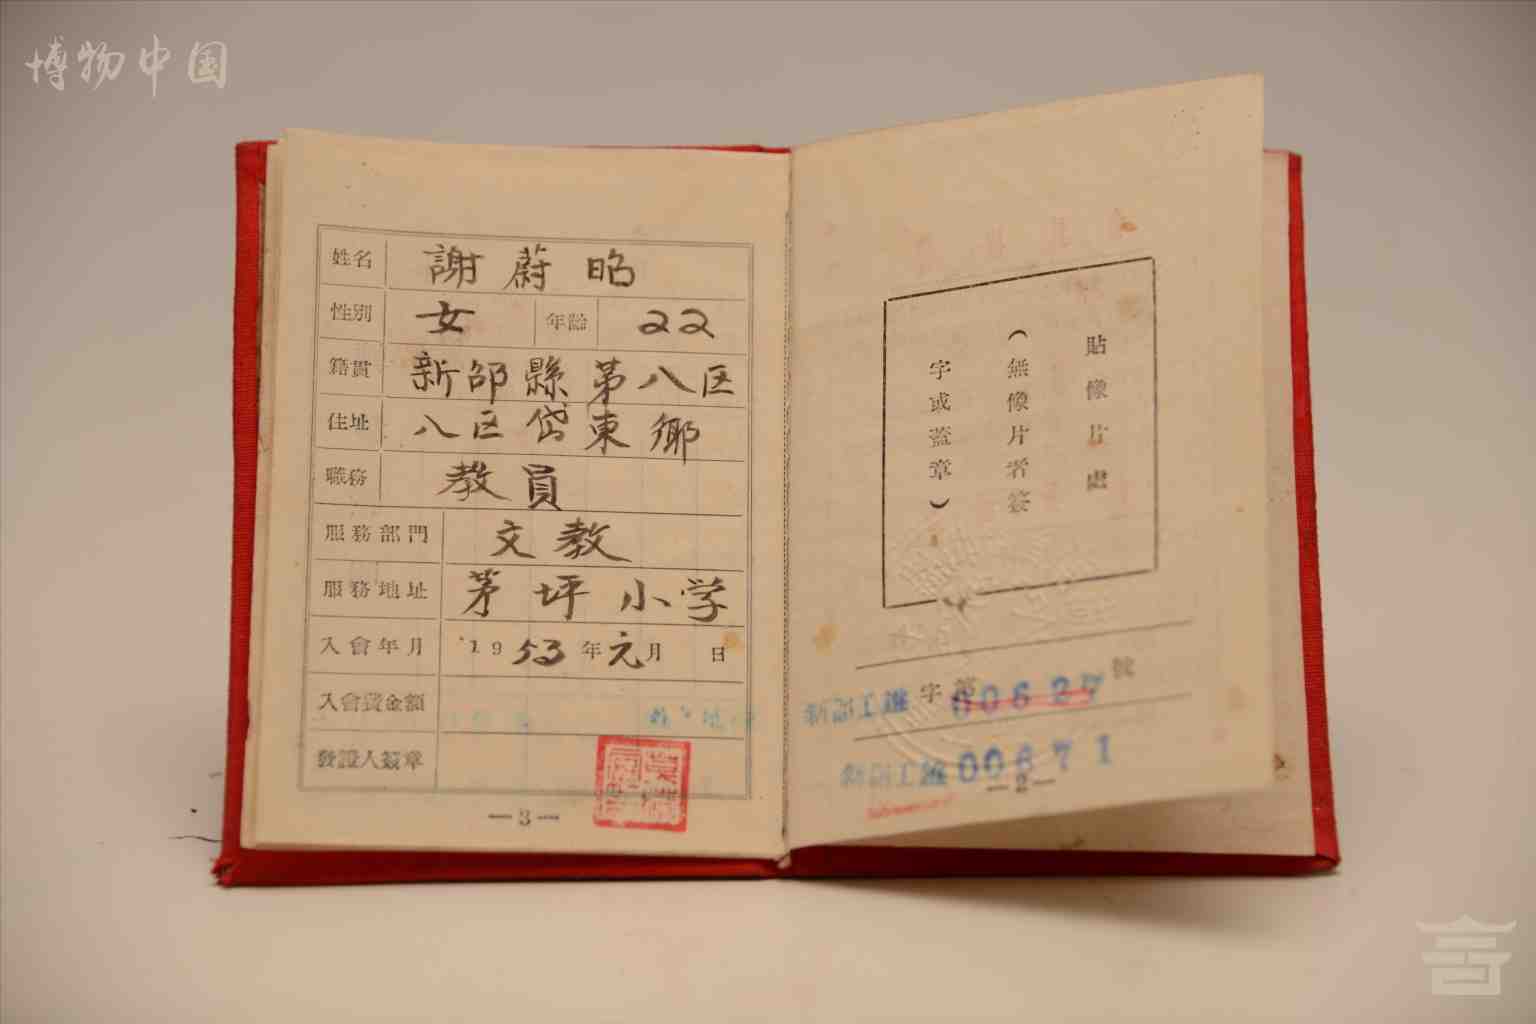 博物中国
姓名 謝蔚昭
性別 女 年齡 22
籍貫 新邵縣第八区
住址 八区岱東鄉
職務 教員
服務部門 文教
服務地址 茅坪小学
入會年月 1953年元月 日
入會費金額
發證人簽章
—3—
貼像片處
(無像片者簽
字或蓋章)
新邵工雖字第00627號
00671
—2—